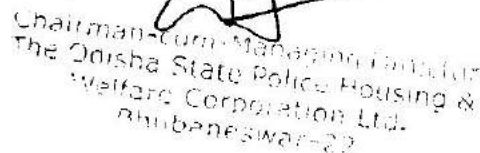 Chairman-cum-Managing Director
The Odisha State Police Housing &
Welfare Corporation Ltd.
Bhubaneswar-22